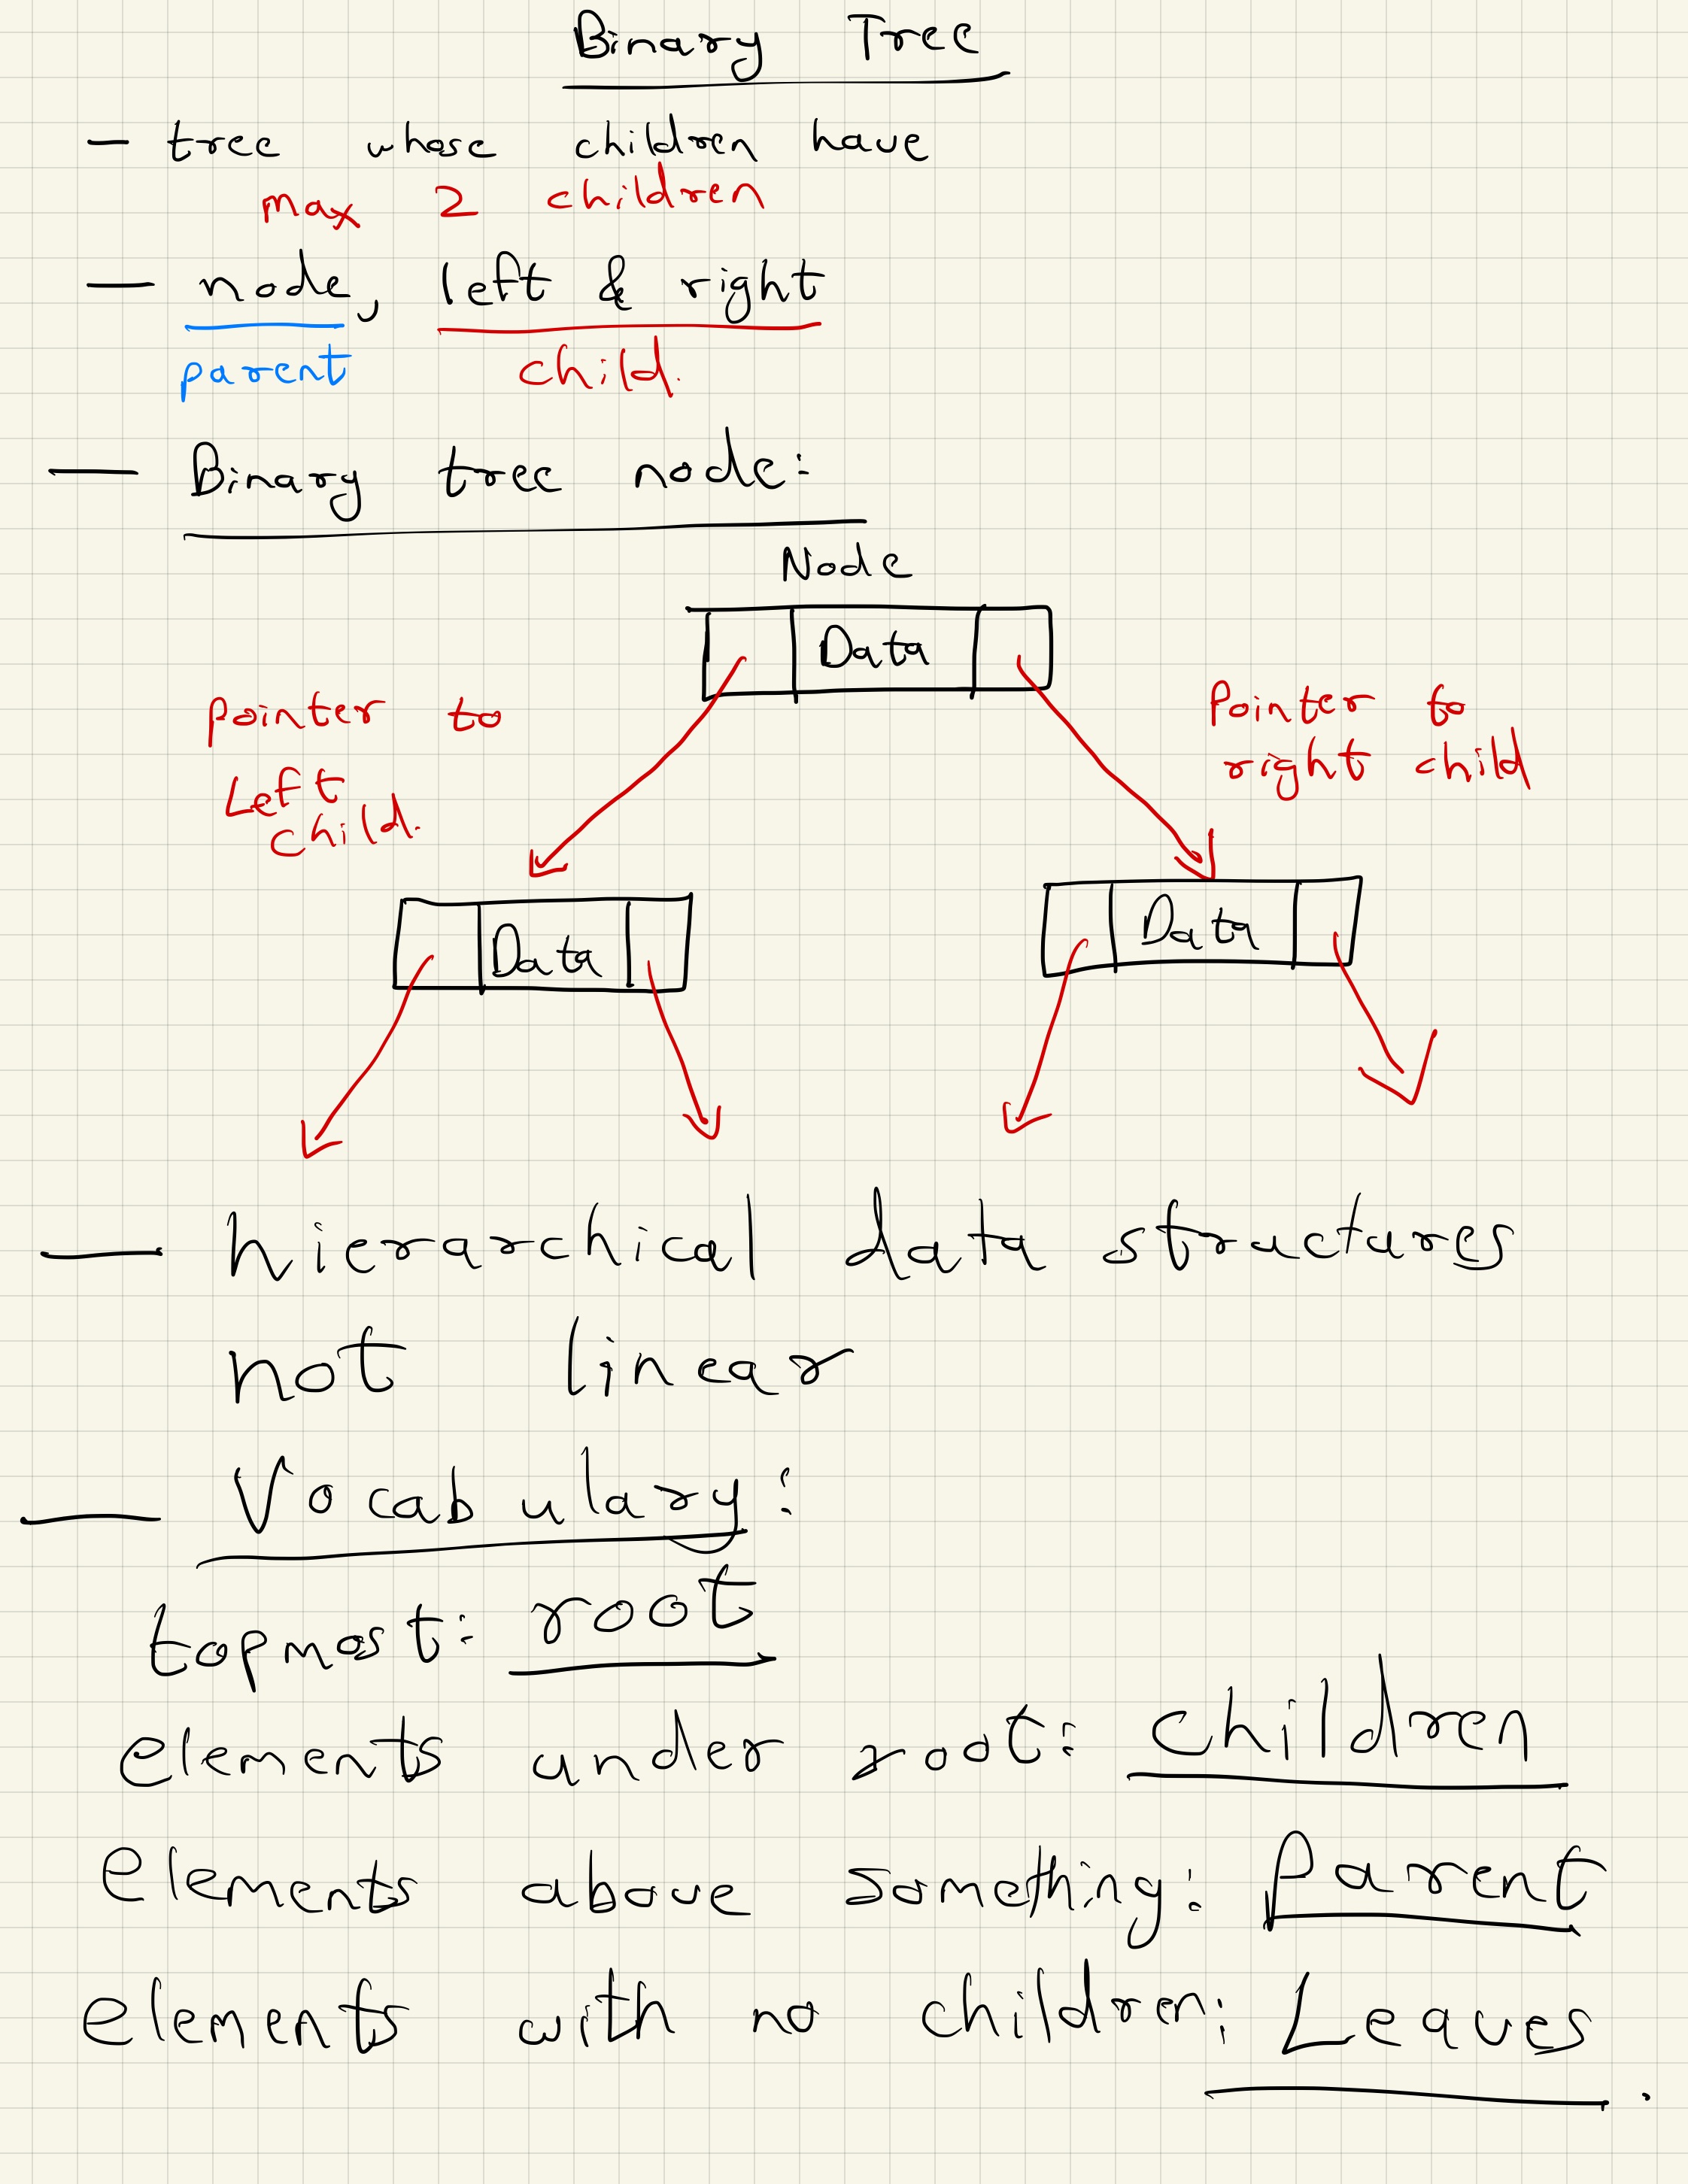 Binary Tree
— tree whose children have
max 2 children
— node, left & right
parent child.
— Binary tree node:
Node
Data
Pointer to
Left
child.
Pointer to
right child
Data
Data
— hierarchical data structures
not linear
— Vocabulary:
topmost: root
elements under root: children
elements above something: Parent
elements with no children: Leaves.